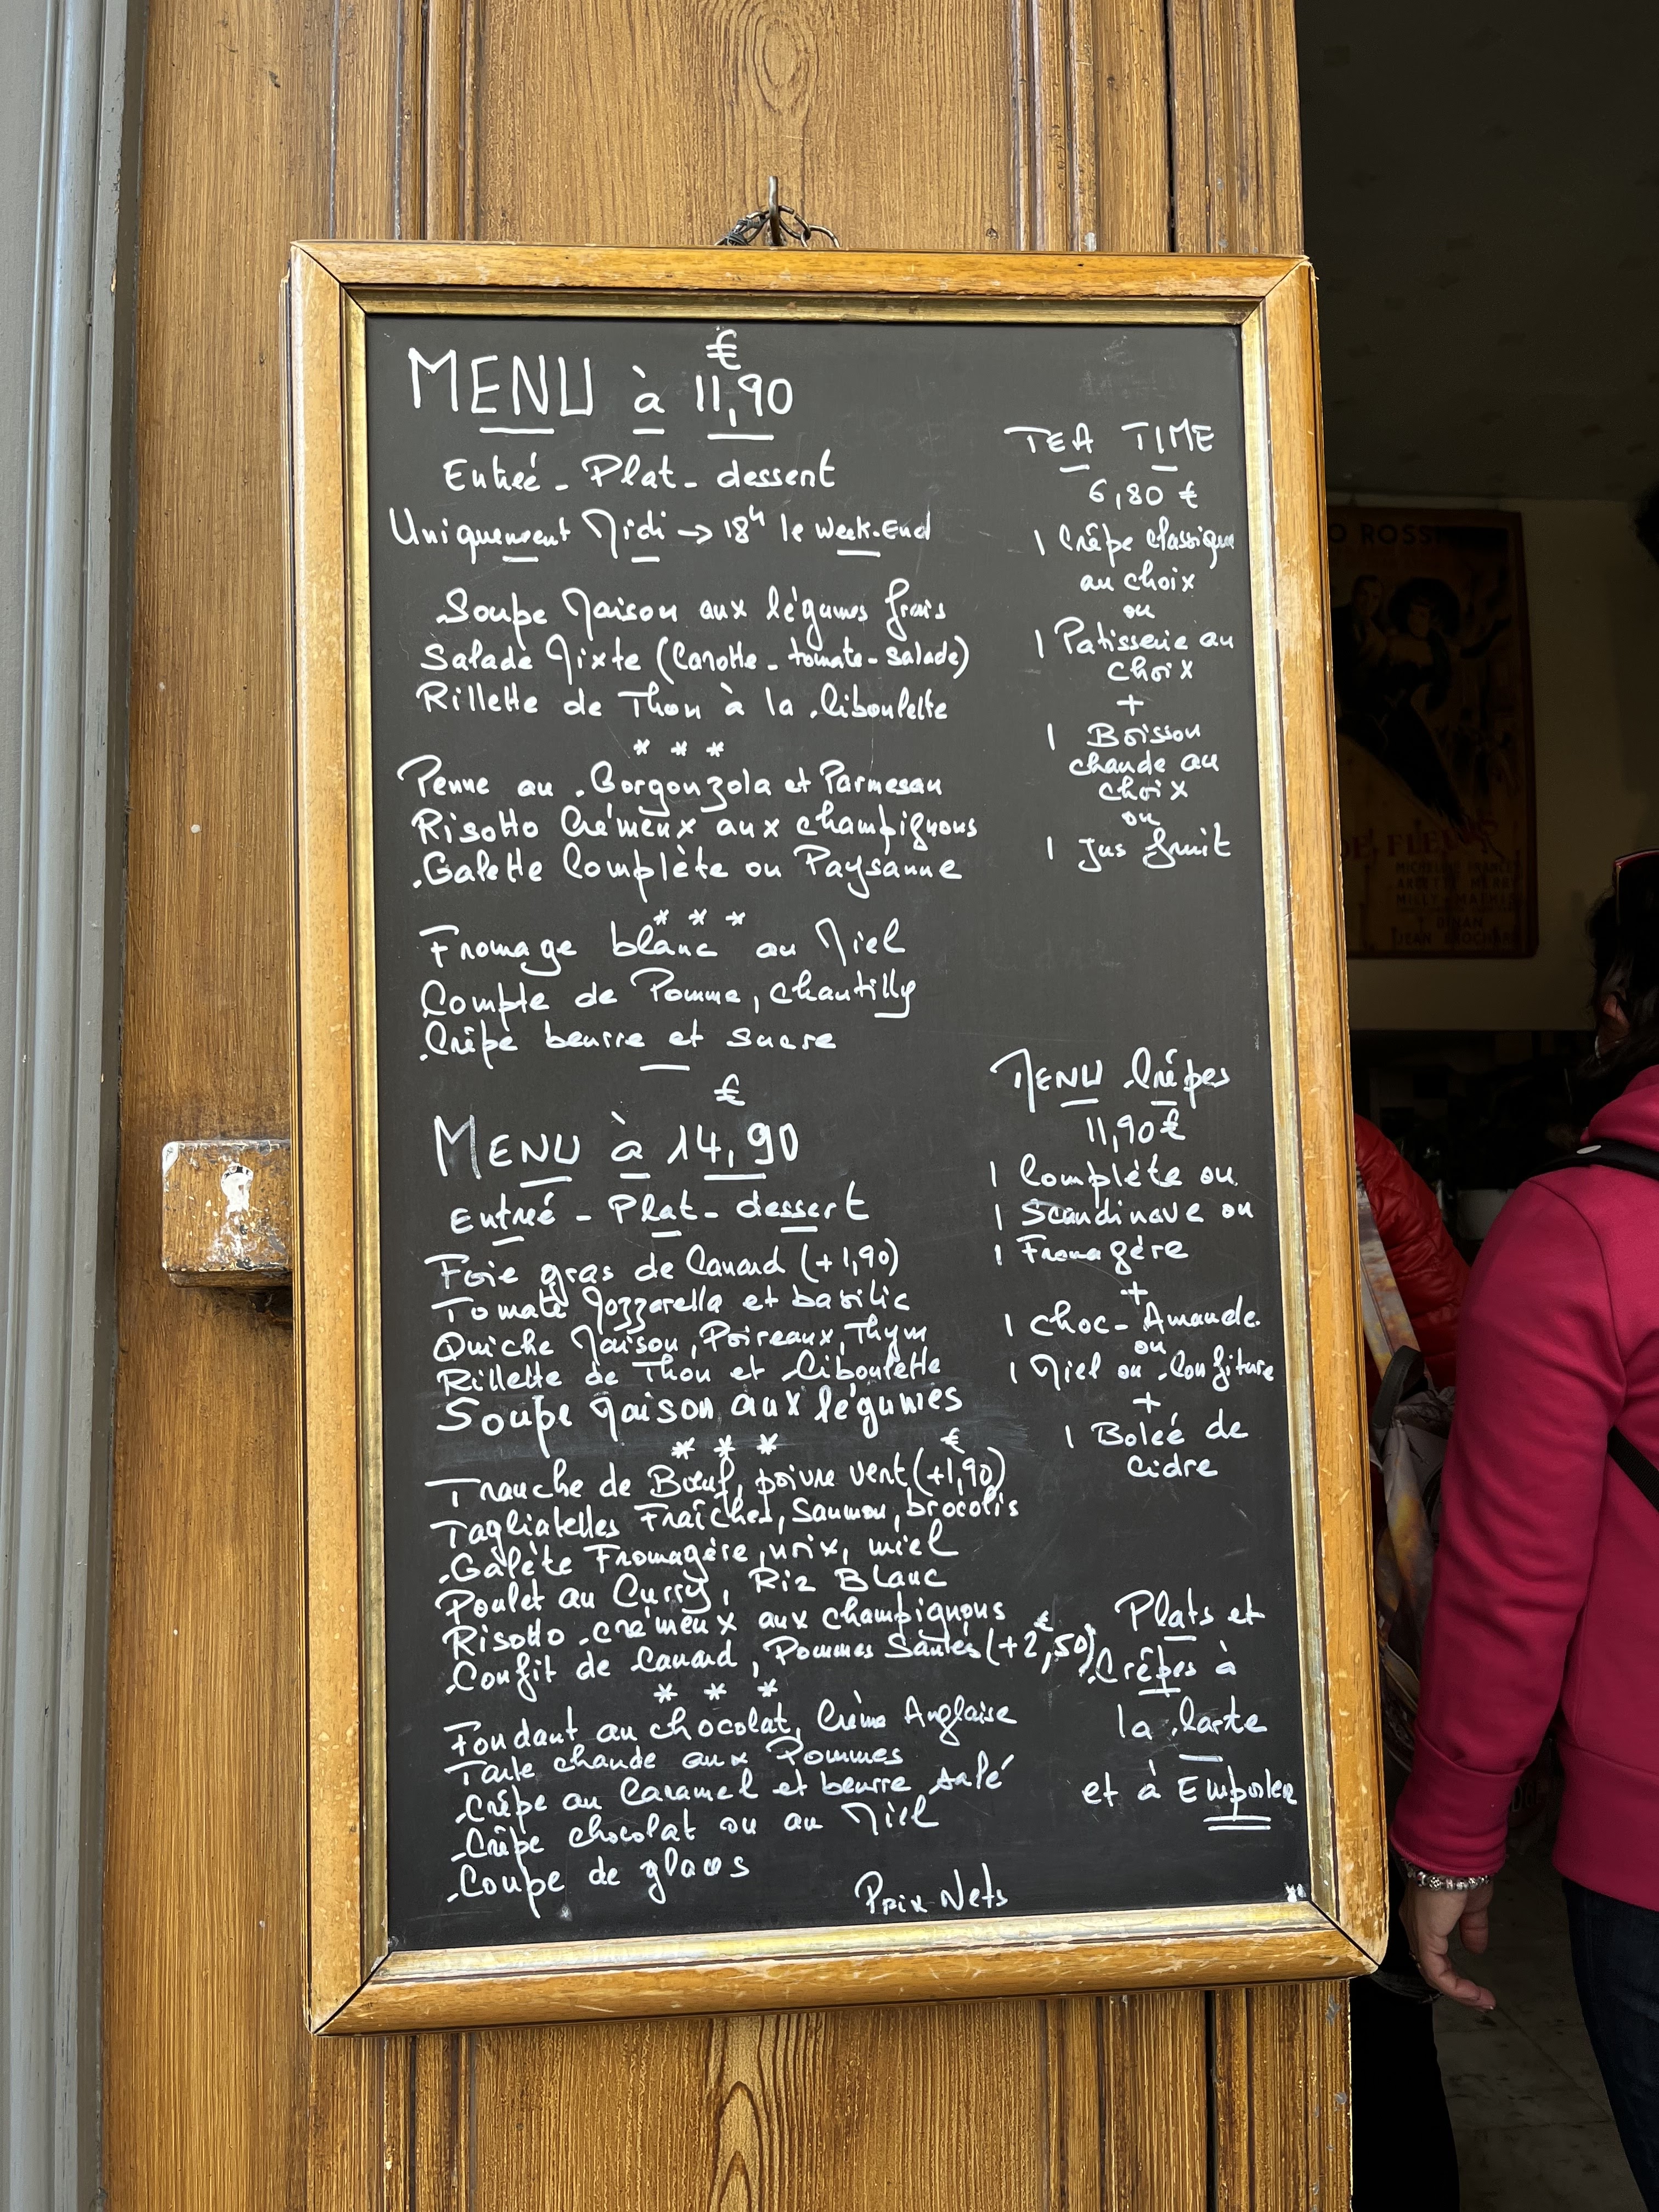 MENU à 11,90 €
Entrée - Plat - dessert
Uniquement Midi → 18h le Week-End
Soupe Maison aux légumes frais
Salade Mixte (Carotte - tomate - Salade)
Rillette de Thon à la Ciboulette
* * *
Penne au Gorgonzola et Parmesan
Risotto Crémeux aux champignons
Galette Complète ou Paysanne
* * *
Fromage blanc au Miel
Compte de Pomme, chantilly
Crêpe beurre et sucre
MENU à 14,90 €
Entrée - Plat - dessert
Foie gras de Canard (+1,90)
Tomate Mozzarella et basilic
Quiche Maison, Poireaux, Thym
Rillette de Thon et Ciboulette
Soupe Maison aux légumes
* * *
Tranche de Bœuf, poivre vert (+1,90) €
Tagliatelles Fraîches, Saumon, brocolis
Galète Fromagère, noix, miel
Poulet au Curry, Riz Blanc
Risotto crémeux aux champignons
Confit de Canard, Pommes Sautés (+2,50) €
* * *
Fondant au chocolat, Crème Anglaise
Tarte chaude aux Pommes
Crêpe au Caramel et beurre salé
Crêpe chocolat ou au Miel
Coupe de glaces
Prix Nets
TEA TIME
6,80 €
1 Crêpe classique
au choix
ou
1 Patisserie au
choix
+
1 Boisson
chaude au
choix
ou
1 Jus fruit
MENU Crêpes
11,90 €
1 Complète ou
1 Scandinave ou
1 Fromagère
+
1 choc - Amande
ou
1 Miel ou Confiture
+
1 Boleé de
Cidre
Plats et
Crêpes à
la Carte
et à Emporter
O ROSS
DE FLEURS